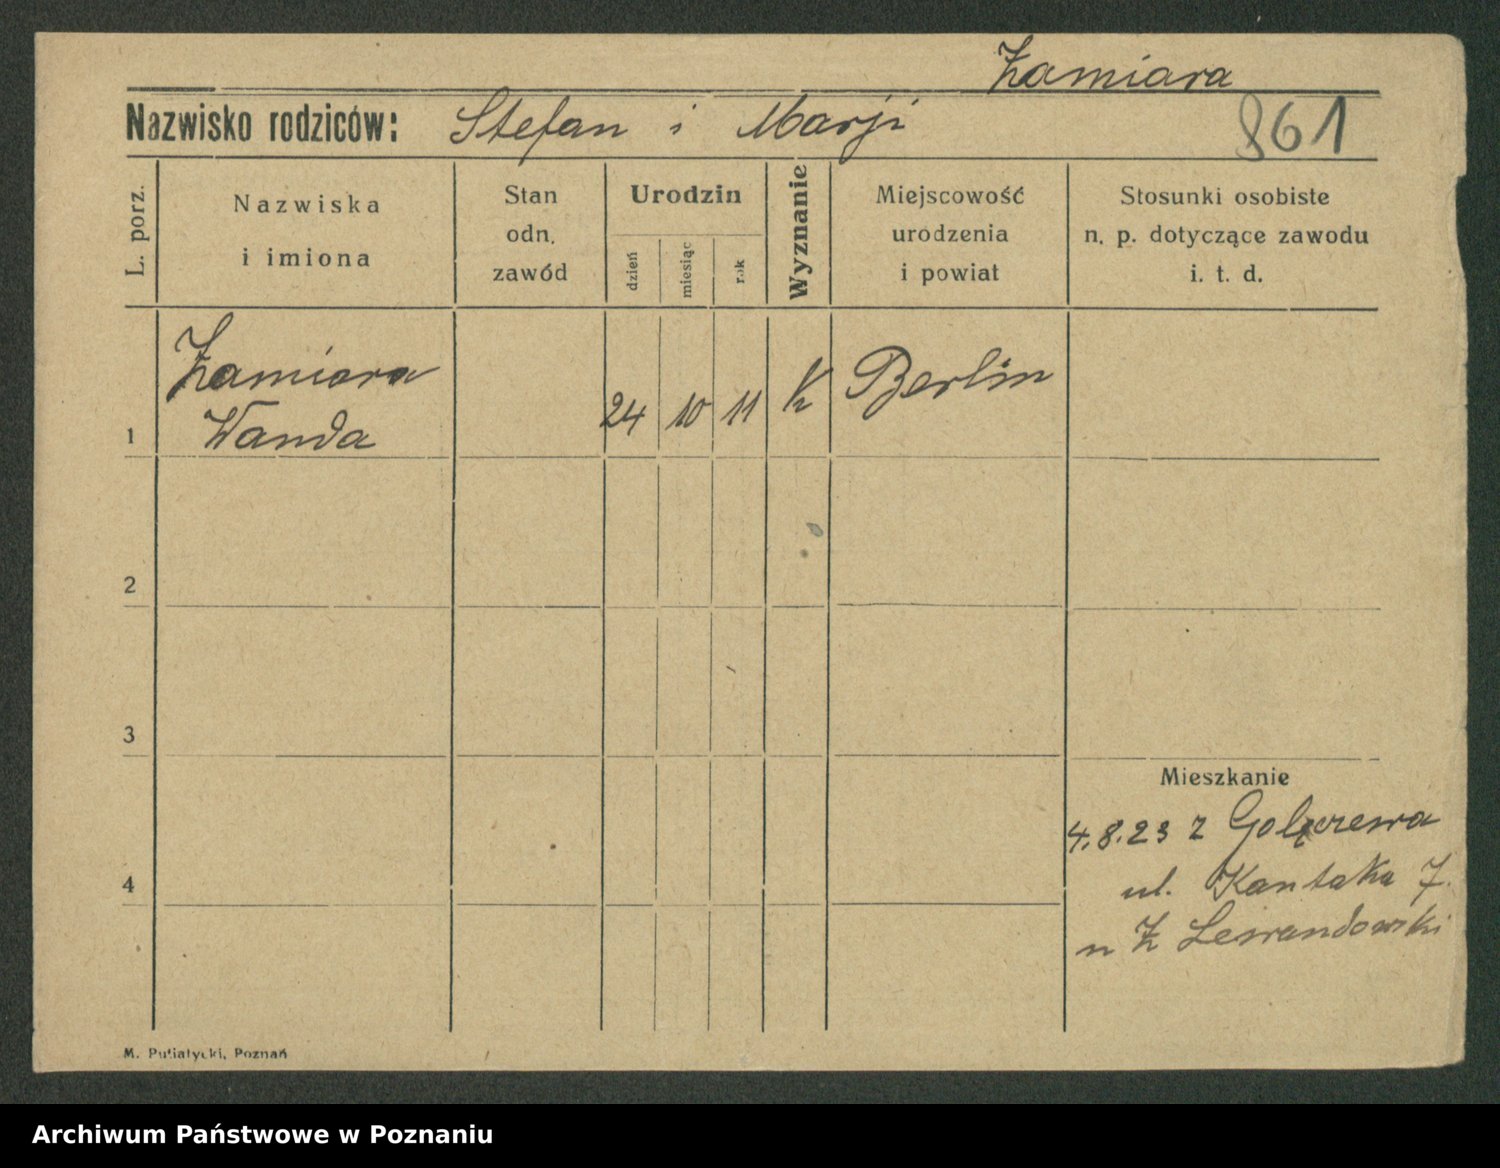 Żamiara
Nazwisko rodziców: Stefan i Marji
861
L. porz.
Nazwiska
i imiona
Stan
odn.
zawód
Urodzin
dzień
miesiąc
rok
Wyznanie
Miejscowość
urodzenia
i powiat
Stosunki osobiste
n. p. dotyczące zawodu
i. t. d.
Żamiara
Wanda
1
24 10 11 K Berlin
2
3
4
Mieszkanie
4.8.23 z Golęczewa
ul. Kantaka 7.
Lewandowski
M. Putiatycki, Poznań
Archiwum Państwowe w Poznaniu